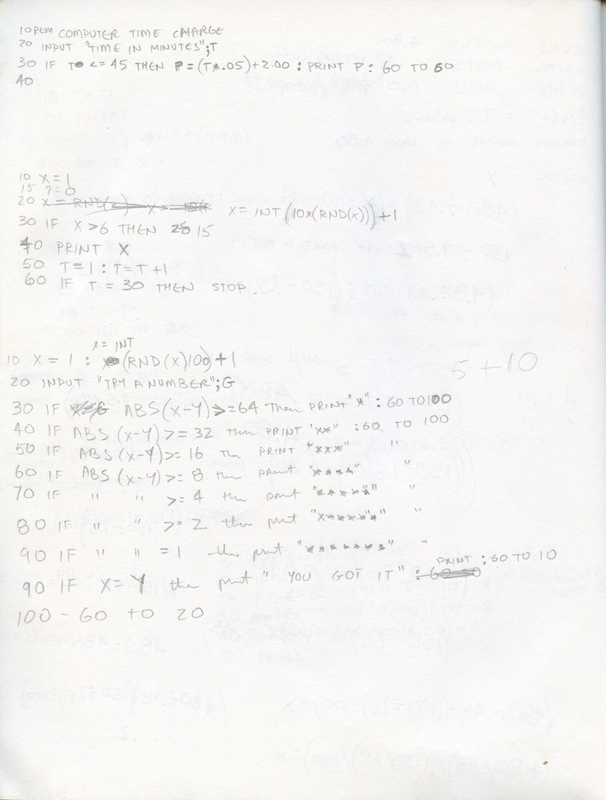 10 REM COMPUTER TIME CHARGE
20 INPUT "TIME IN MINUTES";T
30 IF T <= 45 THEN P=(T*.05)+2.00 : PRINT P : GO TO 60
40
10 X = 1
15 T = 0
20 X = INT(10*(RND(X)))+1
30 IF X >6 THEN 15
40 PRINT X
50 T=1 : T=T+1
60 IF T = 30 THEN STOP.
X = INT
10 X = 1 : (RND(X)100)+1
5 + 10
20 INPUT "TRY A NUMBER";G
30 IF ABS(X-Y) >=64 then PRINT "*" : GO TO 100
40 IF ABS (X-Y) >= 32 then PRINT "**" : GO TO 100
50 IF ABS (X-Y) >= 16 the PRINT "***" "
60 IF ABS (X-Y) >= 8 the print "****" "
70 IF " " >= 4 the print "*****" "
80 IF " " >= 2 the print "******" "
90 IF " " = 1 the print "*******" "
90 IF X=Y the print " YOU GOT IT" : PRINT : GO TO 10
100 - GO TO 20